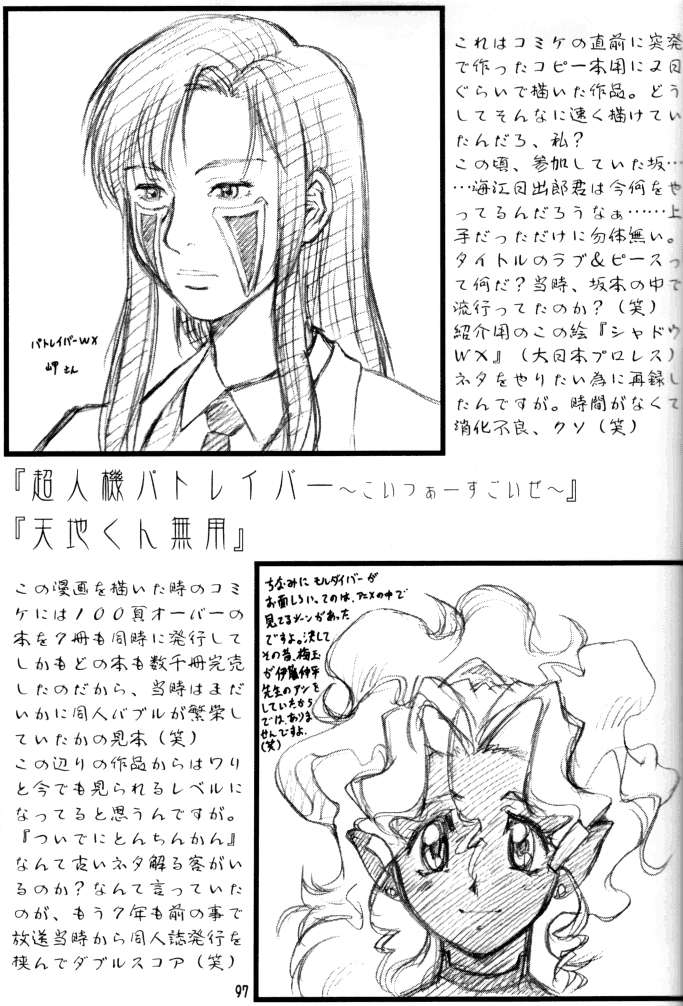 これはコミケの直前に突発
で作ったコピー本用に2日
ぐらいで描いた作品。どう
してそんなに速く描けてい
たんだろ、私?
この頃、参加していた坂…
…海江田出郎君は今何をや
ってるんだろうなぁ……上
手だっただけに勿体無い。
タイトルのラブ&ピースっ
て何だ?当時、坂本の中で
流行ってたのか?(笑)
紹介用のこの絵『シャドウ
WX』(大日本プロレス)
ネタをやりたい為に再録し
たんですが。時間がなくて
消化不良、クソ(笑)
パトレイバーWX
岬さん
『超人機パトレイバー~こいつぁーすごいぜ~』
『天地くん無用』
この漫画を描いた時のコミ
ケには100頁オーバーの
本を7冊も同時に発行して
しかもどの本も数千冊完売
したのだから、当時はまだ
いかに同人バブルが繁栄し
ていたかの見本(笑)
この辺りの作品からはワり
と今でも見られるレベルに
なってると思うんですが。
『ついでにとんちんかん』
なんて古いネタ解る客がい
るのか?なんて言っていた
のが、もう7年も前の事で
放送当時から同人誌発行を
挟んでダブルスコア(笑)
ちなみにモルダイバーが
お面しろい、てのは、アニメの中で
見てるシーンがあった
ですよ。決して
その昔、梅玉
が伊藤伸平
先生のアシを
していたから
では、ありま
せんですよ。
(笑)
97